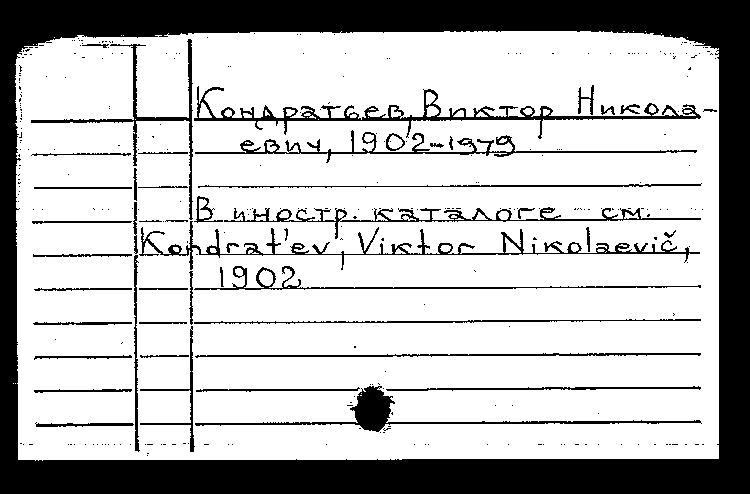 Кондратьев, Виктор Никола-
евич, 1902-1979
В иностр. каталоге см.
Kondrat'ev, Viktor Nikolaevič,
1902